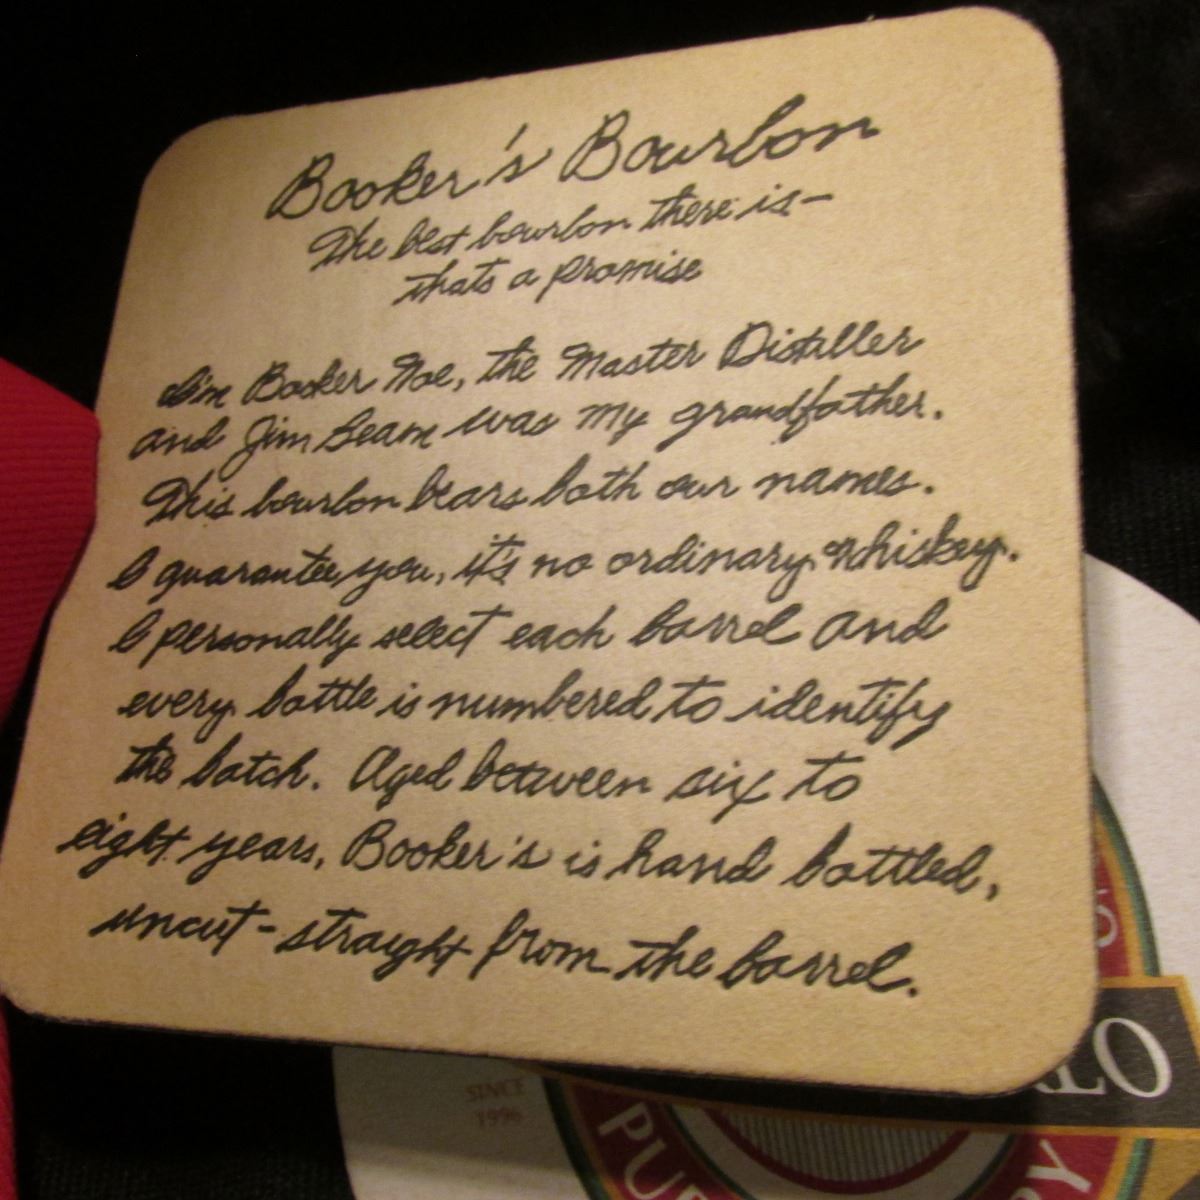 Booker's Bourbon
The best bourbon there is-
thats a promise
I'm Booker Noe, the Master Distiller
and Jim Beam was my grandfather.
This bourbon bears both our names.
I guarantee you, it's no ordinary whiskey.
I personally select each barrel and
every bottle is numbered to identify
the batch. Aged between six to
eight years, Booker's is hand bottled,
uncut-straight from the barrel.
SINCE
1996